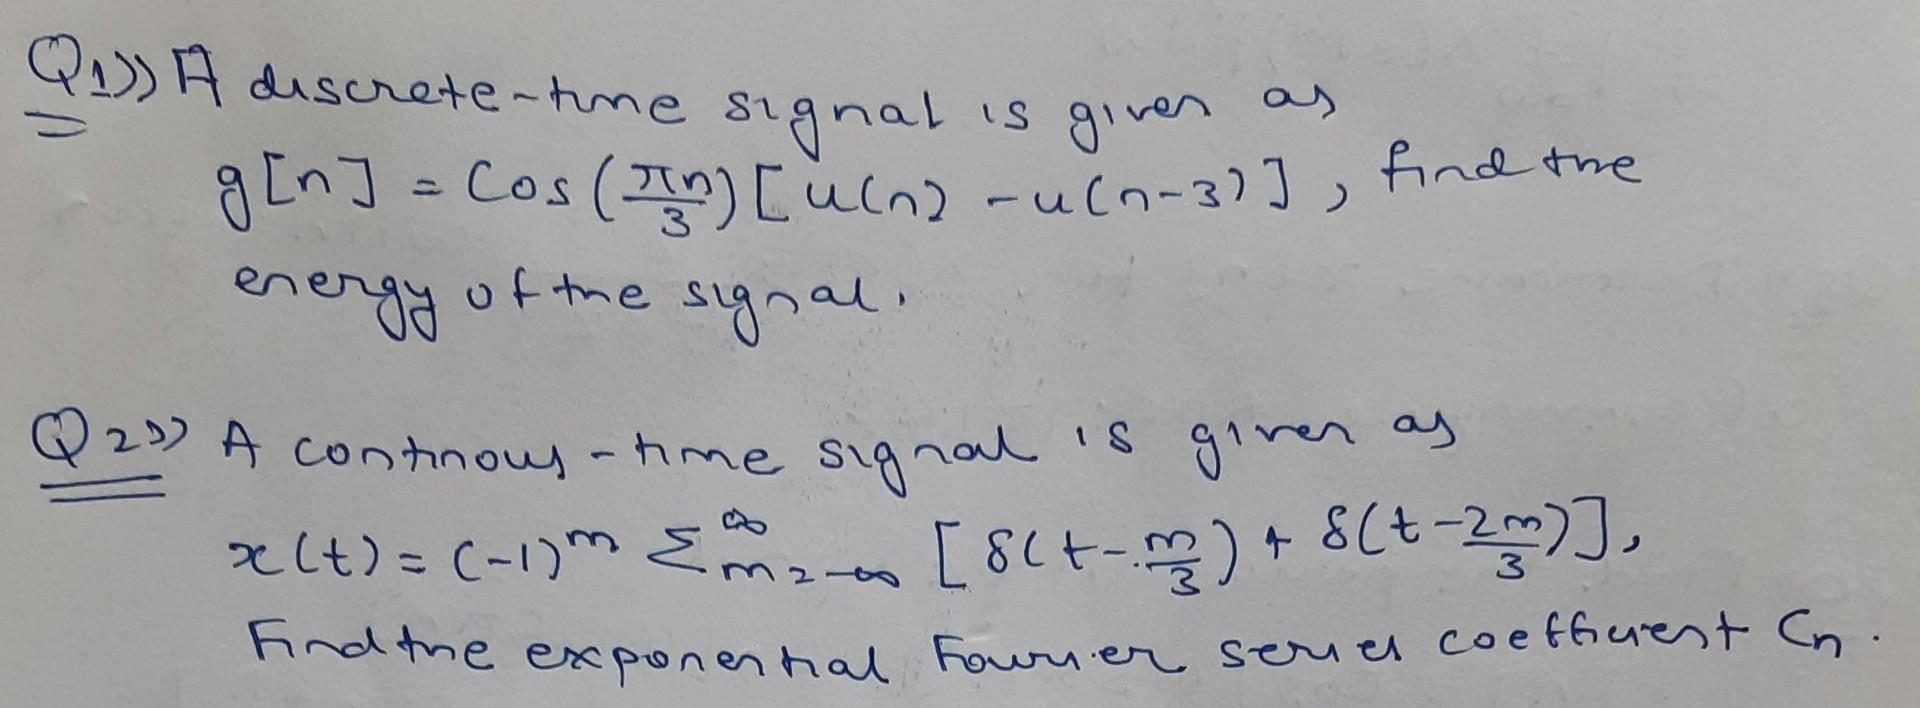 Q1》 A discrete-time signal is given as
g[n] = Cos(πn/3)[u(n) - u(n-3)], find the
energy of the signal.
Q2》 A continous-time signal is given as
x(t) = (-1)^m Σ_{m=-∞}^{∞} [δ(t-m/3) + δ(t-2m/3)],
Find the exponential Fourier series coefficient Cn.